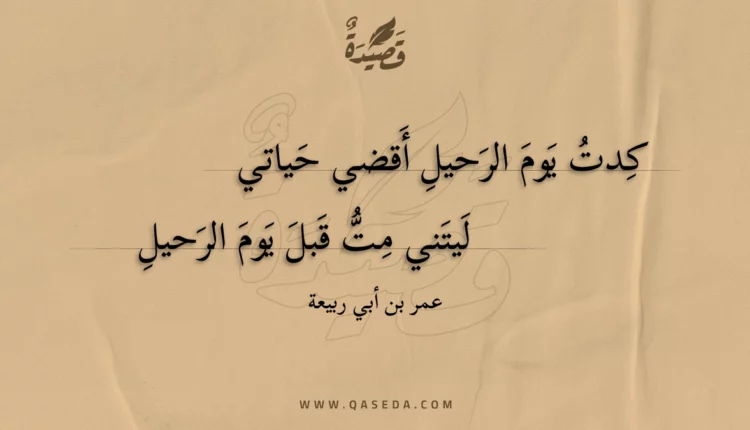 قَصِيْدَةٌ
كِدتُ يَومَ الرَحيلِ أَقضي حَياتي
لَيتَني مِتُّ قَبلَ يَومَ الرَحيلِ
عمر بن أبي ربيعة
WWW.QASEDA.COM